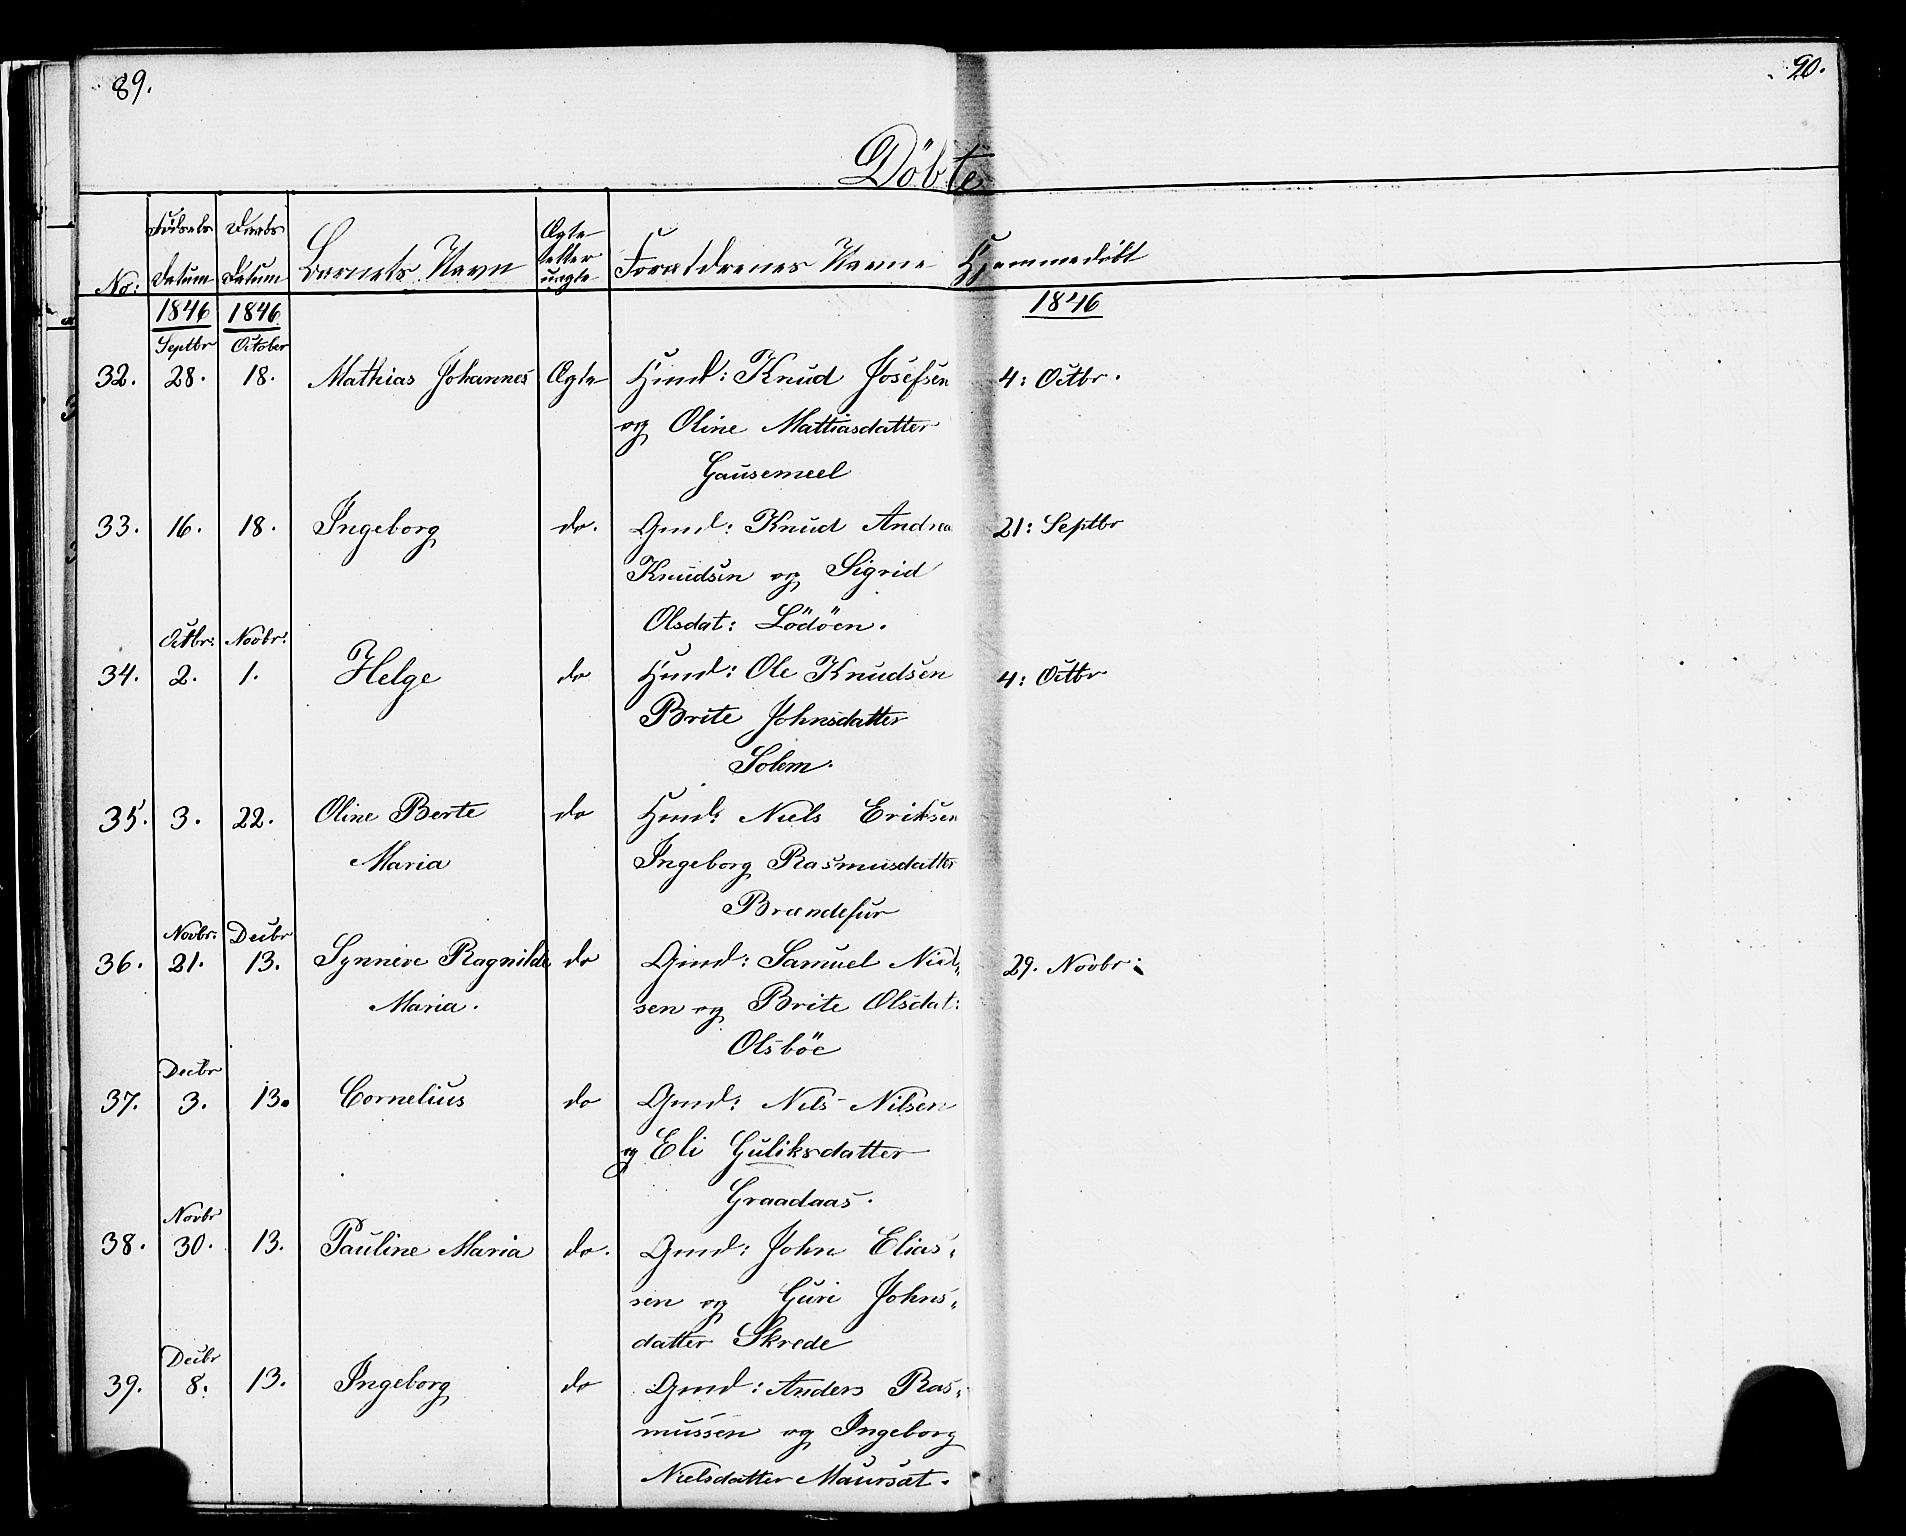 89.
90.
Döbte
No:
Födsels Datum
Daabs Datum
Barnets Navn
Ægte eller uægte
Foreldrenes Navne
Hjemmedöbt
1846
1846
1846
Septbr
October
32. 28. 18. Mathias Johannes Ægte Huusm: Knud Josefsen 4: Octbr.
og Oline Mattiasdatter
Gausemeel
33. 16. 18. Ingeborg do. Gmd: Knud Andrea 21: Septbr
Knudsen og Sigrid
Olsdat: Lödöen.
Octbr: Novbr:
34. 2. 1. Helge do Huusm: Ole Knudsen 4: Octbr
Brite Johnsdatter
Solem.
35. 3. 22. Oline Berte do Huusm: Niels Eriksen
Maria Ingeborg Rasmusdatter
Brandefur
Novbr: Decbr
36. 21. 13. Synneve Ragnilde do Gmd: Samuel Niel-
29. Novbr:
Maria. sen og Brite Olsdat:
Olsböe
Decbr
37. 3. 13. Cornelius do Gmd: Nils Nilsen
og Eli Guliksdatter
Graadaas.
Novbr
38. 30. 13. Pauline Maria do. Gmd: John Elias-
sen og Guri Johns-
datter Skrede
Decbr
39. 8. 13. Ingeborg do Gmd: Anders Ras-
mussen og Ingeborg
Nielsdatter Maursat.